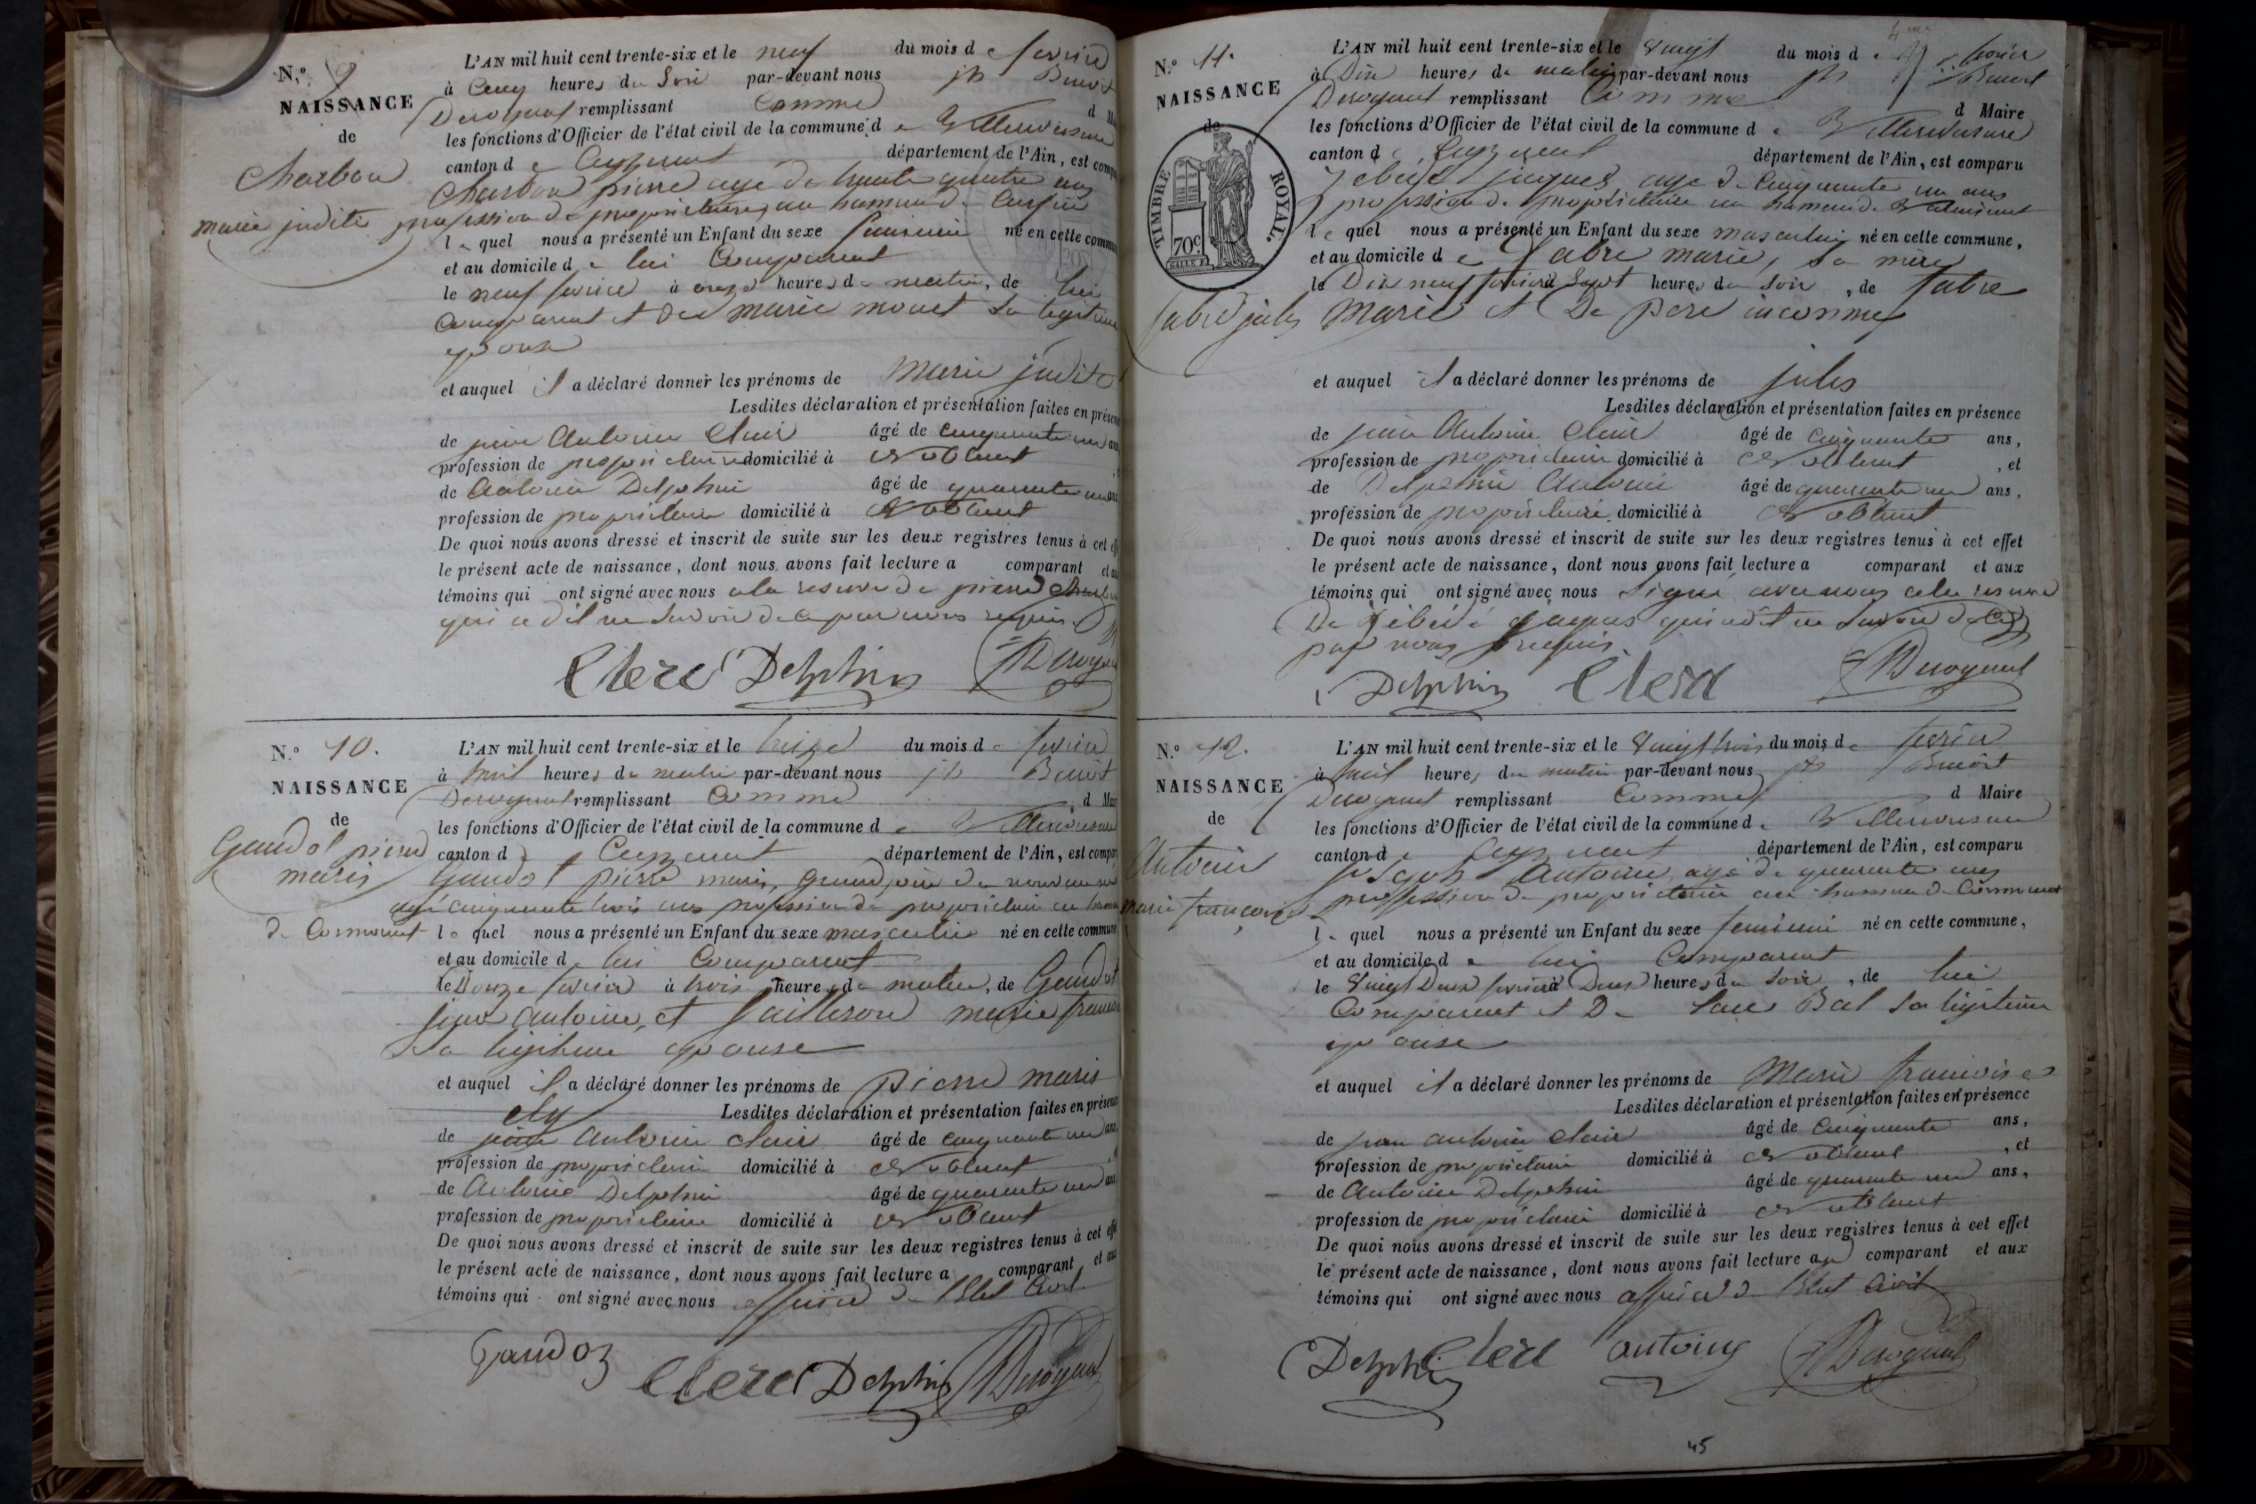 N.º 9
NAISSANCE
de
Charbon
marie judite
L'AN mil huit cent trente-six et le neuf du mois de fevrier
à Cinq heures du Soir par-devant nous jh Benoit
Derognat remplissant Comme d
les fonctions d'Officier de l'état civil de la commune de Villereversure
canton de Ceyzeriat département de l'Ain, est
Charbon pierre age de trente quatre ans
profession de proprietaire au hameau de
le quel nous a présenté un Enfant du sexe feminin né en cette
et au domicile de lui Comparant
le neuf fevrier à onze heures du matin, de lui
Comparant et de marie monet Sa legitime
epouse
et auquel il a déclaré donner les prénoms de Marie judite
Lesdites déclaration et présentation faites en
de jean Antoine Clair âgé de cinquante un
profession de proprietaire domicilié à Noblens
de Antoine Delphin âgé de quarante un
profession de proprietaire domicilié à Noblens
De quoi nous avons dressé et inscrit de suite sur les deux registres tenus à cet
le présent acte de naissance, dont nous avons fait lecture a comparant
témoins qui ont signé avec nous a la reserve de pierre Charbon
qui a dit ne Savoir de ce par nous requis
Clerc Delphin Derognat
N.º 10.
NAISSANCE
de
Gaudot pierre
maris
L'AN mil huit cent trente-six et le treize du mois de fevrier
à huit heures du matin par-devant nous jh Benoit
Derognat remplissant Comme d
les fonctions d'Officier de l'état civil de la commune de Villereversure
canton de Ceyzeriat département de l'Ain, est
Gaudot pierre maris, grand pere du
agé cinquante trois ans profession de proprietaire au hameau
de Cormorant le quel nous a présenté un Enfant du sexe masculin né en cette commune
et au domicile de lui Comparant
le Douze fevrier à trois heures du matin, de Gaudot
jean antoine, et marie
Sa legitime epouse
et auquel il a déclaré donner les prénoms de pierre maris
Lesdites déclaration et présentation faites en
de jean antoine clair âgé de cinquante un
profession de proprietaire domicilié à Noblens
de Antoine Delphin âgé de quarante un
profession de proprietaire domicilié à Noblens
De quoi nous avons dressé et inscrit de suite sur les deux registres tenus à cet
le présent acte de naissance, dont nous avons fait lecture a comparant et
témoins qui ont signé avec nous officier de l'Etat Civil
Gaudoz Clerc Delphin Derognat
N.º 11.
NAISSANCE
de
TIMBRE ROYAL.
70c
fabre jules
L'AN mil huit cent trente-six et le Vingt du mois de fevrier
à Dix heures du matin par-devant nous jh Benoit
Derognat remplissant Comme d Maire
les fonctions d'Officier de l'état civil de la commune de Villereversure
canton de Ceyzeriat département de l'Ain, est comparu
jaques, age de Cinquante un ans
profession de proprietaire au hameau de
le quel nous a présenté un Enfant du sexe masculin né en cette commune,
et au domicile de fabre marie, Sa mere
le Dix neuf fevrier à Sept heures du Soir, de fabre
Marie et De pere inconnu
et auquel il a déclaré donner les prénoms de jules
Lesdites déclaration et présentation faites en présence
de jean Antoine Clair âgé de Cinquante ans,
profession de proprietaire domicilié à Noblens, et
de Delphin Antoine âgé de quarante un ans,
profession de proprietaire domicilié à Noblens
De quoi nous avons dressé et inscrit de suite sur les deux registres tenus à cet effet
le présent acte de naissance, dont nous avons fait lecture a comparant et aux
témoins qui ont signé avec nous Signé avec nous a la reserve
De jaques qui a dit ne Savoir de ce
par nous requis.
Delphin Clerc Derognat
N.º 12.
NAISSANCE
de
Antoine
marie françoise
L'AN mil huit cent trente-six et le Vingt trois du mois de fevrier
à huit heures du matin par-devant nous jh Benoit
Derognat remplissant Comme d Maire
les fonctions d'Officier de l'état civil de la commune de Villereversure
canton de Ceyzeriat département de l'Ain, est comparu
Joseph Antoine, agé de quarante ans
profession de proprietaire au hameau de Cormorant
le quel nous a présenté un Enfant du sexe feminin né en cette commune,
et au domicile de lui Comparant
le Vingt Deux fevrier à Deux heures du Soir, de lui
Comparant et De Bal Sa legitime
epouse
et auquel il a déclaré donner les prénoms de Marie francoise
Lesdites déclaration et présentation faites en présence
de jean antoine clair âgé de Cinquante ans,
profession de proprietaire domicilié à Noblens, et
de Antoine Delphin âgé de quarante un ans,
profession de proprietaire domicilié à Noblens
De quoi nous avons dressé et inscrit de suite sur les deux registres tenus à cet effet
le présent acte de naissance, dont nous avons fait lecture au comparant et aux
témoins qui ont signé avec nous officier de l'Etat Civil
Delphin Clerc antoine Derognat
45